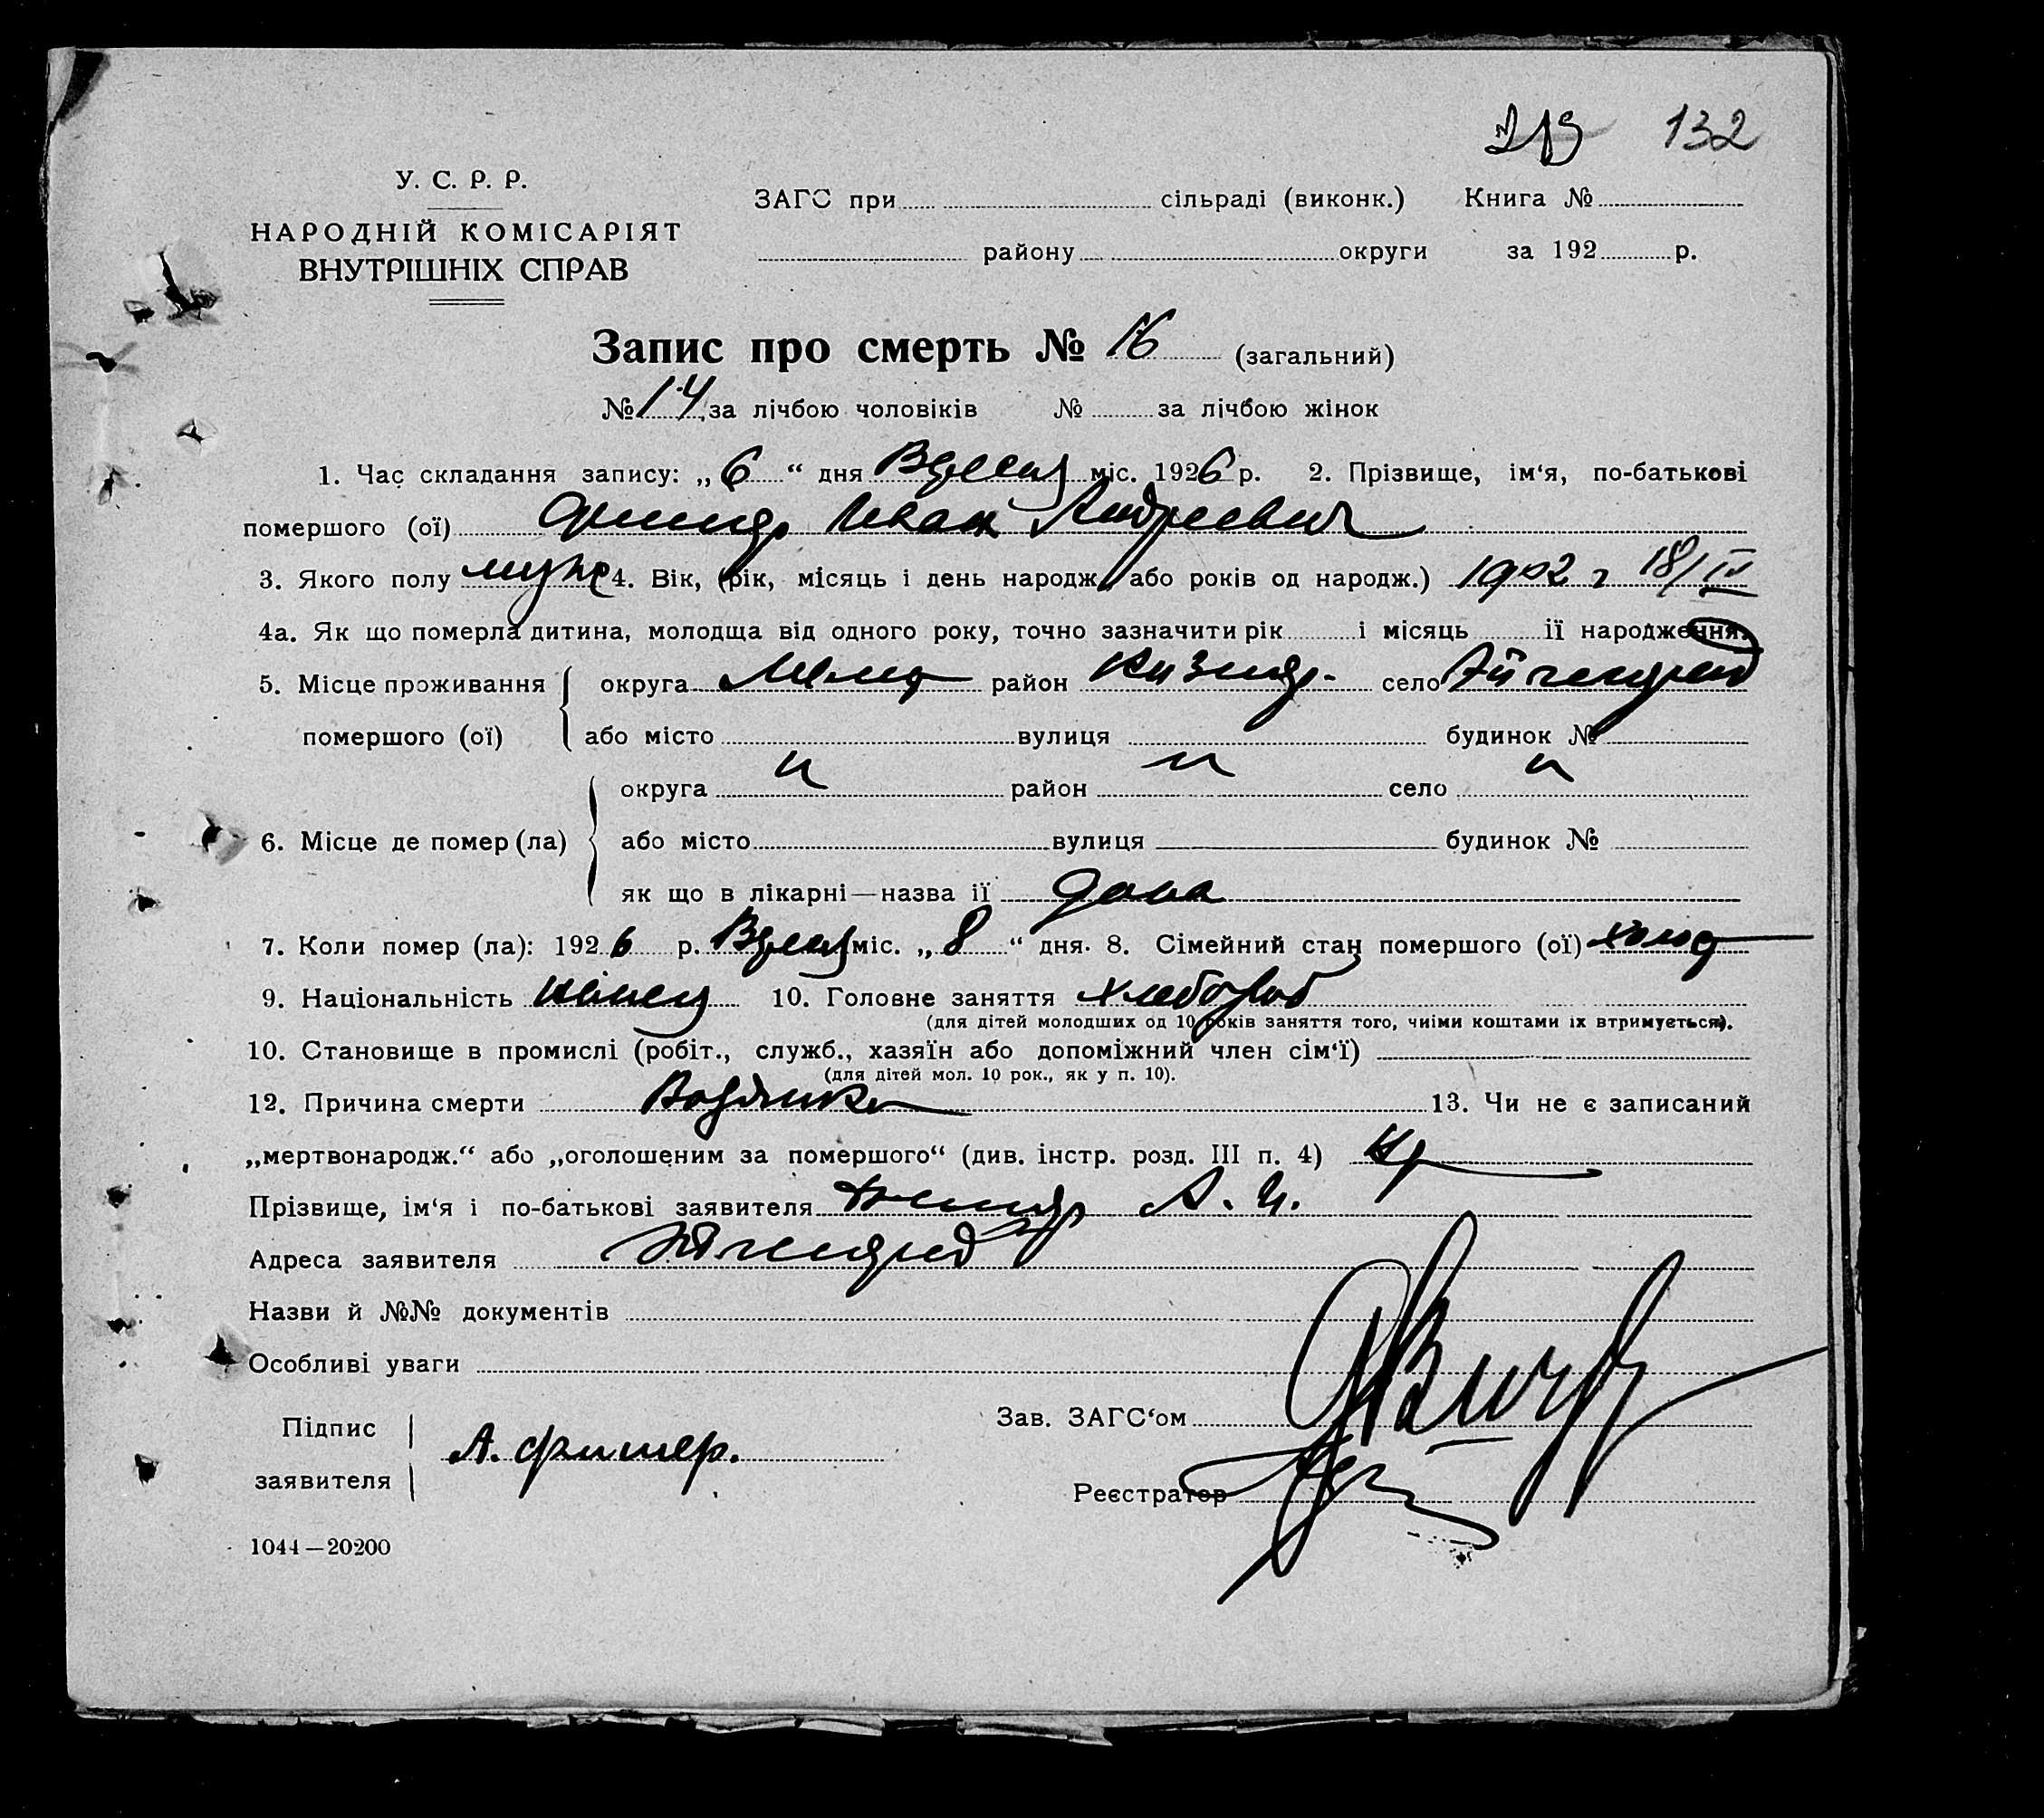 132
У. С. Р. Р.
НАРОДНІЙ КОМІСАРІЯТ
ВНУТРІШНІХ СПРАВ
ЗАГС при сільраді (виконк.) Книга №
району округи за 192 р.
Запис про смерть № 16 (загальний)
№ 14 за лічбою чоловіків № за лічбою жінок
1. Час складання запису: „6“ дня Вересня міс. 1926 р. 2. Прізвище, ім‘я, по-батькові
помершого (ої) Фишер Иван Андреевич
3. Якого полу муж 4. Вік, (рік, місяць і день народж. або років од народж.) 1902 г 18/IV
4а. Як що померла дитина, молодща від одного року, точно зазначити рік і місяць її народження.
5. Місце проживання округа район село
помершого (ої) або місто вулиця будинок №
округа " район " село "
6. Місце де помер (ла) або місто вулиця будинок №
як що в лікарні—назва її дома
7. Коли помер (ла): 1926 р. Вересня міс. „8“ дня. 8. Сімейний стан помершого (ої) холод
9. Національність німець 10. Головне заняття хлебороб
(для дітей молодших од 10 років заняття того, чиїми коштами їх втримується).
10. Становище в промислі (робіт., служб., хазяїн або допоміжний член сім‘ї)
(для дітей мол. 10 рок., як у п. 10).
12. Причина смерти Водянка 13. Чи не є записаний
„мертвонародж.“ або „оголошеним за помершого“ (див. інстр. розд. III п. 4)
Прізвище, ім‘я і по-батькові заявителя Фишер А. И.
Адреса заявителя
Назви й №№ документів
Особливі уваги
Підпис
заявителя А. Фишер.
Зав. ЗАГС‘ом
Реєстратор
1044—20200